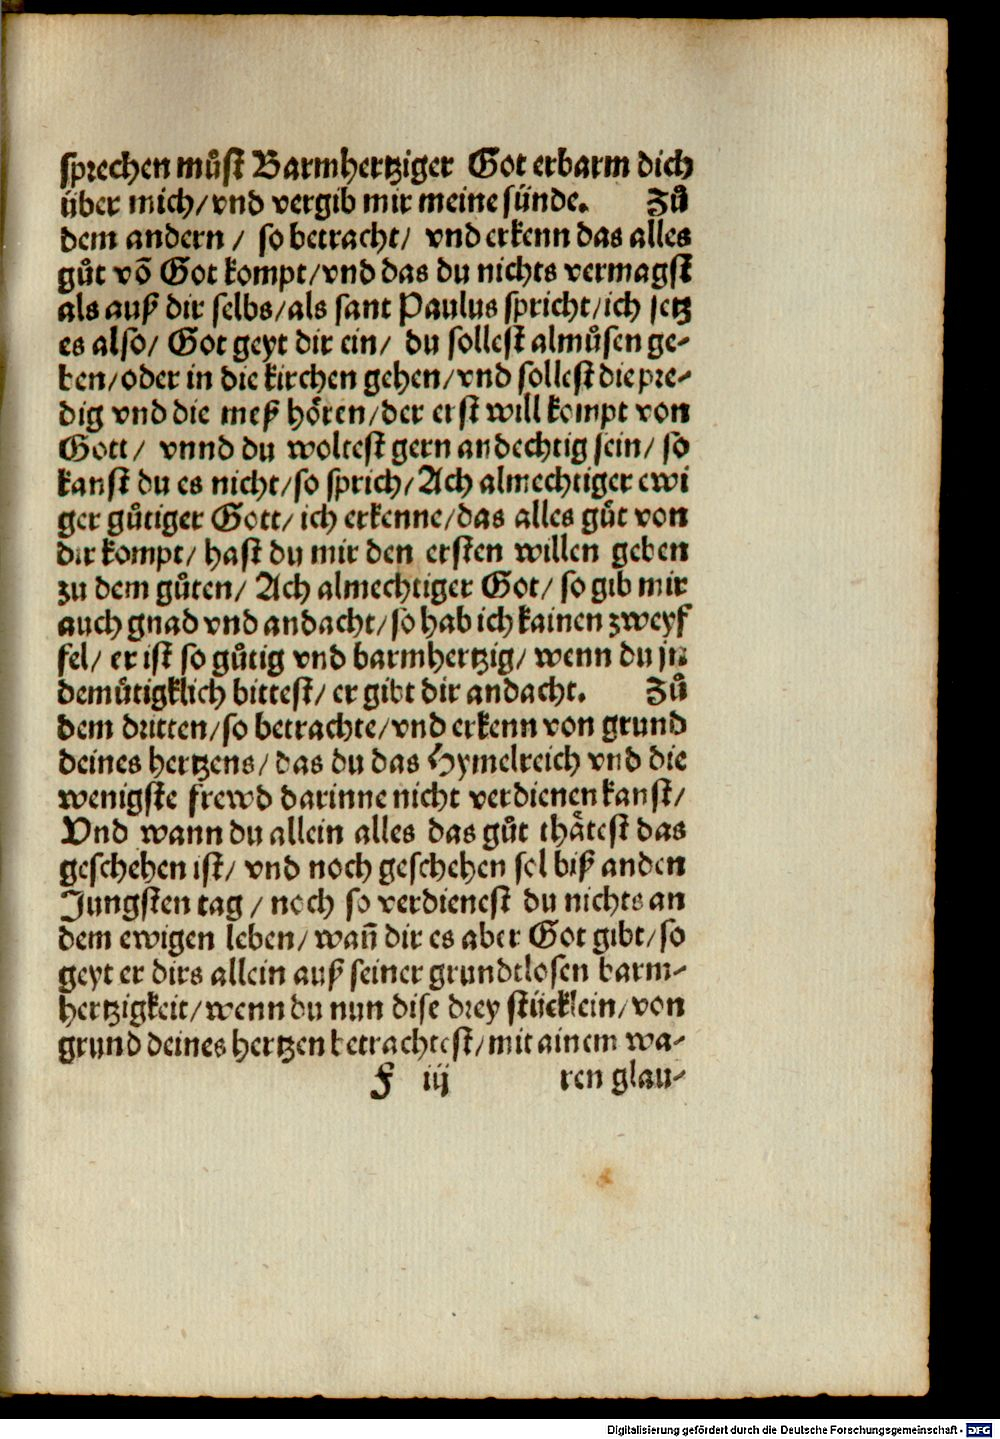 sprechen můst Barmhertziger Got erbarm dich
über mich/ vnd vergib mir meine sünde. Zů
dem andern / so betracht/ vnd erkenn das alles
gůt võ Got kompt/ vnd das du nichts vermagst
als auß dir selbs/ als sant Paulus spricht/ ich setz
es also/ Got geyt dir ein/ du sollest almůsen ge-
ben/ oder in die kirchen gehen/ vnd sollest die pre-
dig vnd die meß hoͤren/ der erst will kompt von
Gott/ vnnd du woltest gern andechtig sein/ so
kanst du es nicht/ so sprich/ Ach almechtiger ewi
ger gůtiger Gott/ ich erkenne/ das alles gůt von
dir kompt/ hast du mir den ersten willen geben
zu dem gůten/ Ach almechtiger Got/ so gib mir
auch gnad vnd andacht/ so hab ich kainen zweyf
fel/ er ist so gůtig vnd barmhertzig/ wenn du jn
demůtigklich bittest/ er gibt dir andacht. Zů
dem dritten/ so betrachte/ vnd erkenn von grund
deines hertzens/ das du das Hymelreich vnd die
wenigste frewd darinne nicht verdienen kanst/
Vnd wann du allein alles das gůt thaͤtest das
geschehen ist/ vnd noch geschehen sol biß an den
Jungsten tag / noch so verdienest du nichts an
dem ewigen leben/ wañ dir es aber Got gibt/ so
geyt er dirs allein auß seiner grundtlosen barm-
hertzigkeit/ wenn du nun dise drey stücklein/ von
grund deines hertzen betrachtest/ mit ainem wa-
F iij ren glau-
Digitalisierung gefördert durch die Deutsche Forschungsgemeinschaft - DFG